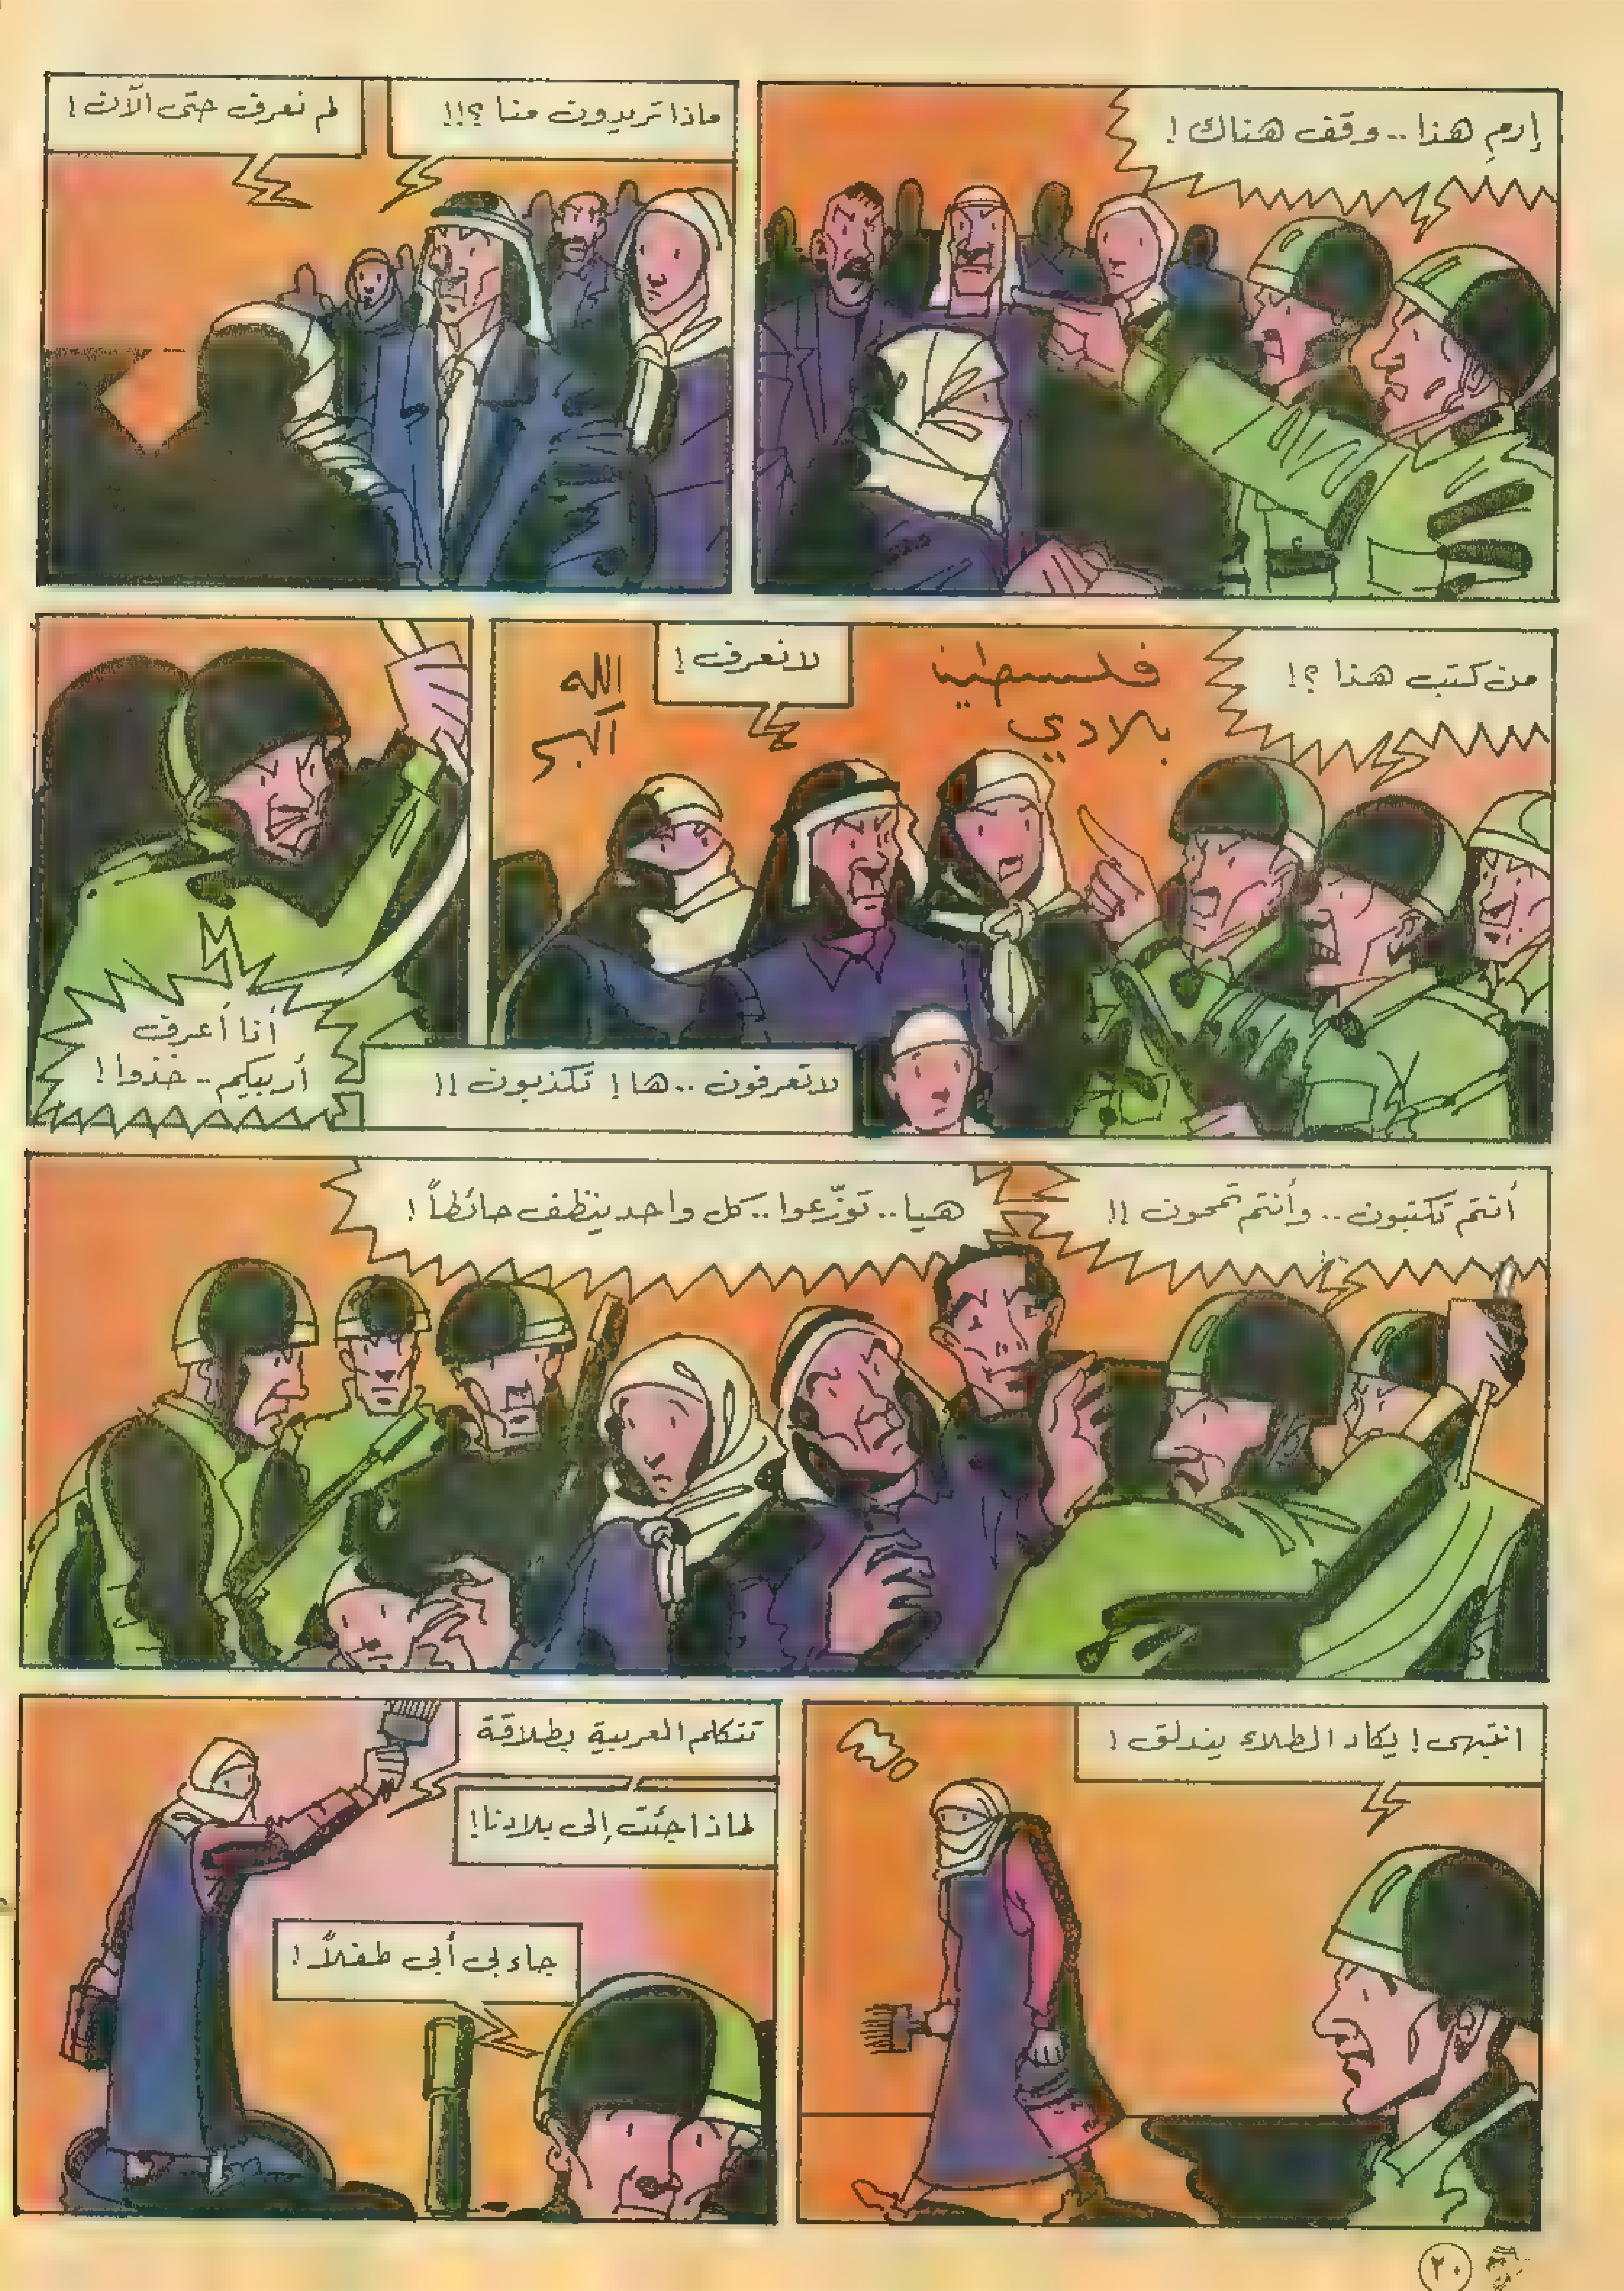 إرمِ هذا .. وقف هناك !
ماذا تريدون منا ؟!!
لم نعرف حتى الآن !
من كتب هذا ؟!
فلسطينا
بلادي
لا نعرف !
الله
اكبر
لا تعرفون .. ها ! تكذبون !!
أنا أعرف
أربيكم .. خذوا !
أنتم تكتبون .. وأنتم تمحون !!
هيا .. توزّعوا .. كل واحد ينظف حائطاً !
انتبهى ! يكاد الطلاء يندلق !
تتكلم العربية بطلاقة
لماذا جئت إلى بلادنا !
جاء بى أبى طفلاً !
٢٠